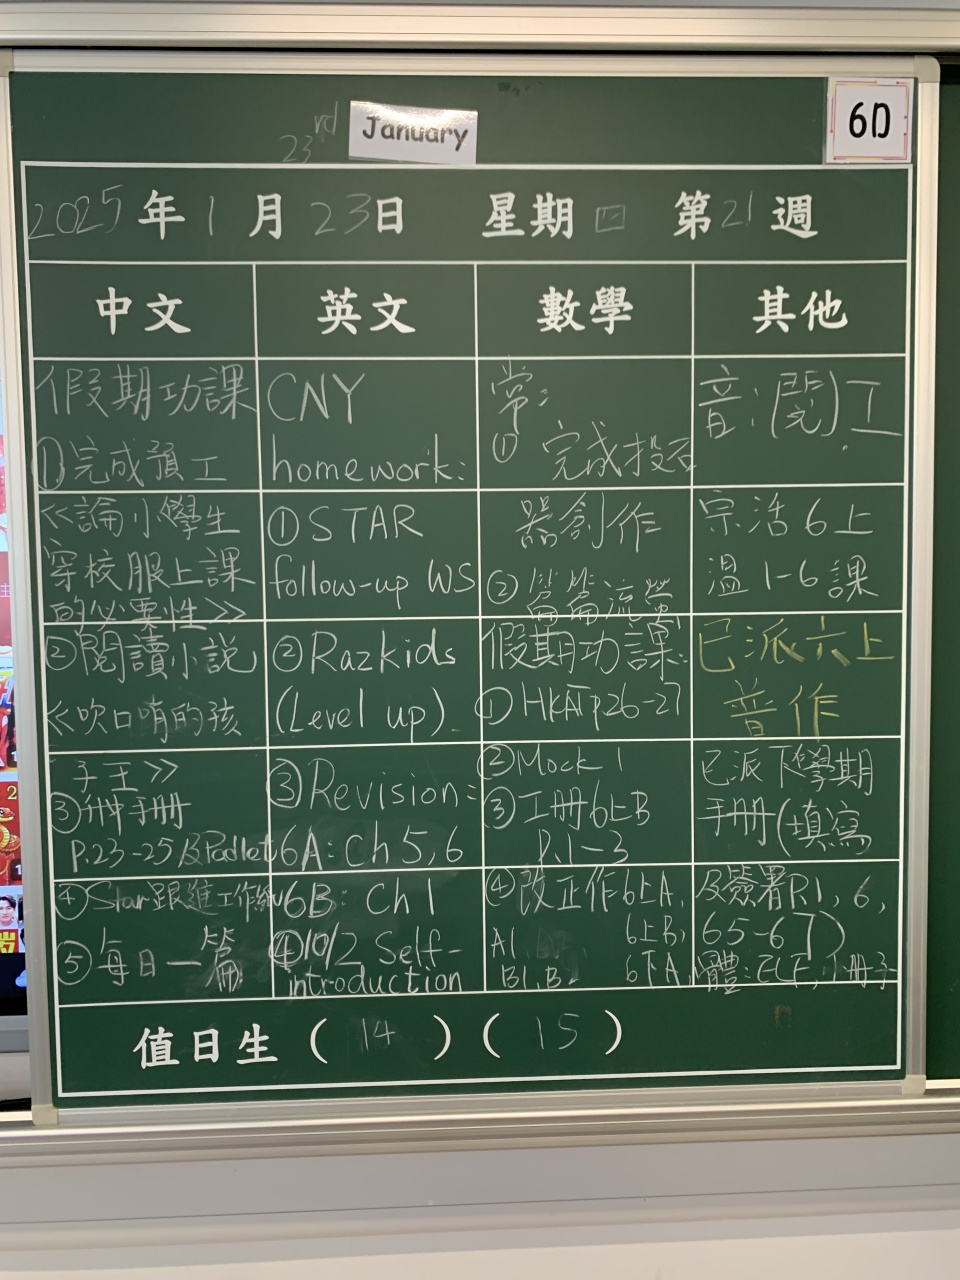 23rd January
6D
2025年1月23日 星期四 第21週
中文
英文
數學
其他
假期功課
①完成預工
≪論小學生
穿校服上課
的必要性≫
②閱讀小說
≪吹口哨的孩
子王≫
③升中手冊
P.23-25及Padlet
④Star跟進工作紙
⑤每日一篇
CNY
homework:
①STAR
follow-up WS
②Razkids
(Level up)
③Revision:
6A: Ch 5,6
6B: Ch 1
④10/2 Self-
introduction
常:
① 完成投石
器創作
②篇篇流螢
假期功課:
①HKAT p26-27
②Mock 1
③工冊6上B
P.1-3
④改正作6上A,
A1 6上B,
B1, B2 6下A,
音:(閱)工
宗活6上
溫1-6課
已派六上
普作
已派下學期
手冊(填寫
及簽署P.1, 6,
65-67)
體:ELE, 小冊子
值日生 (14) (15)